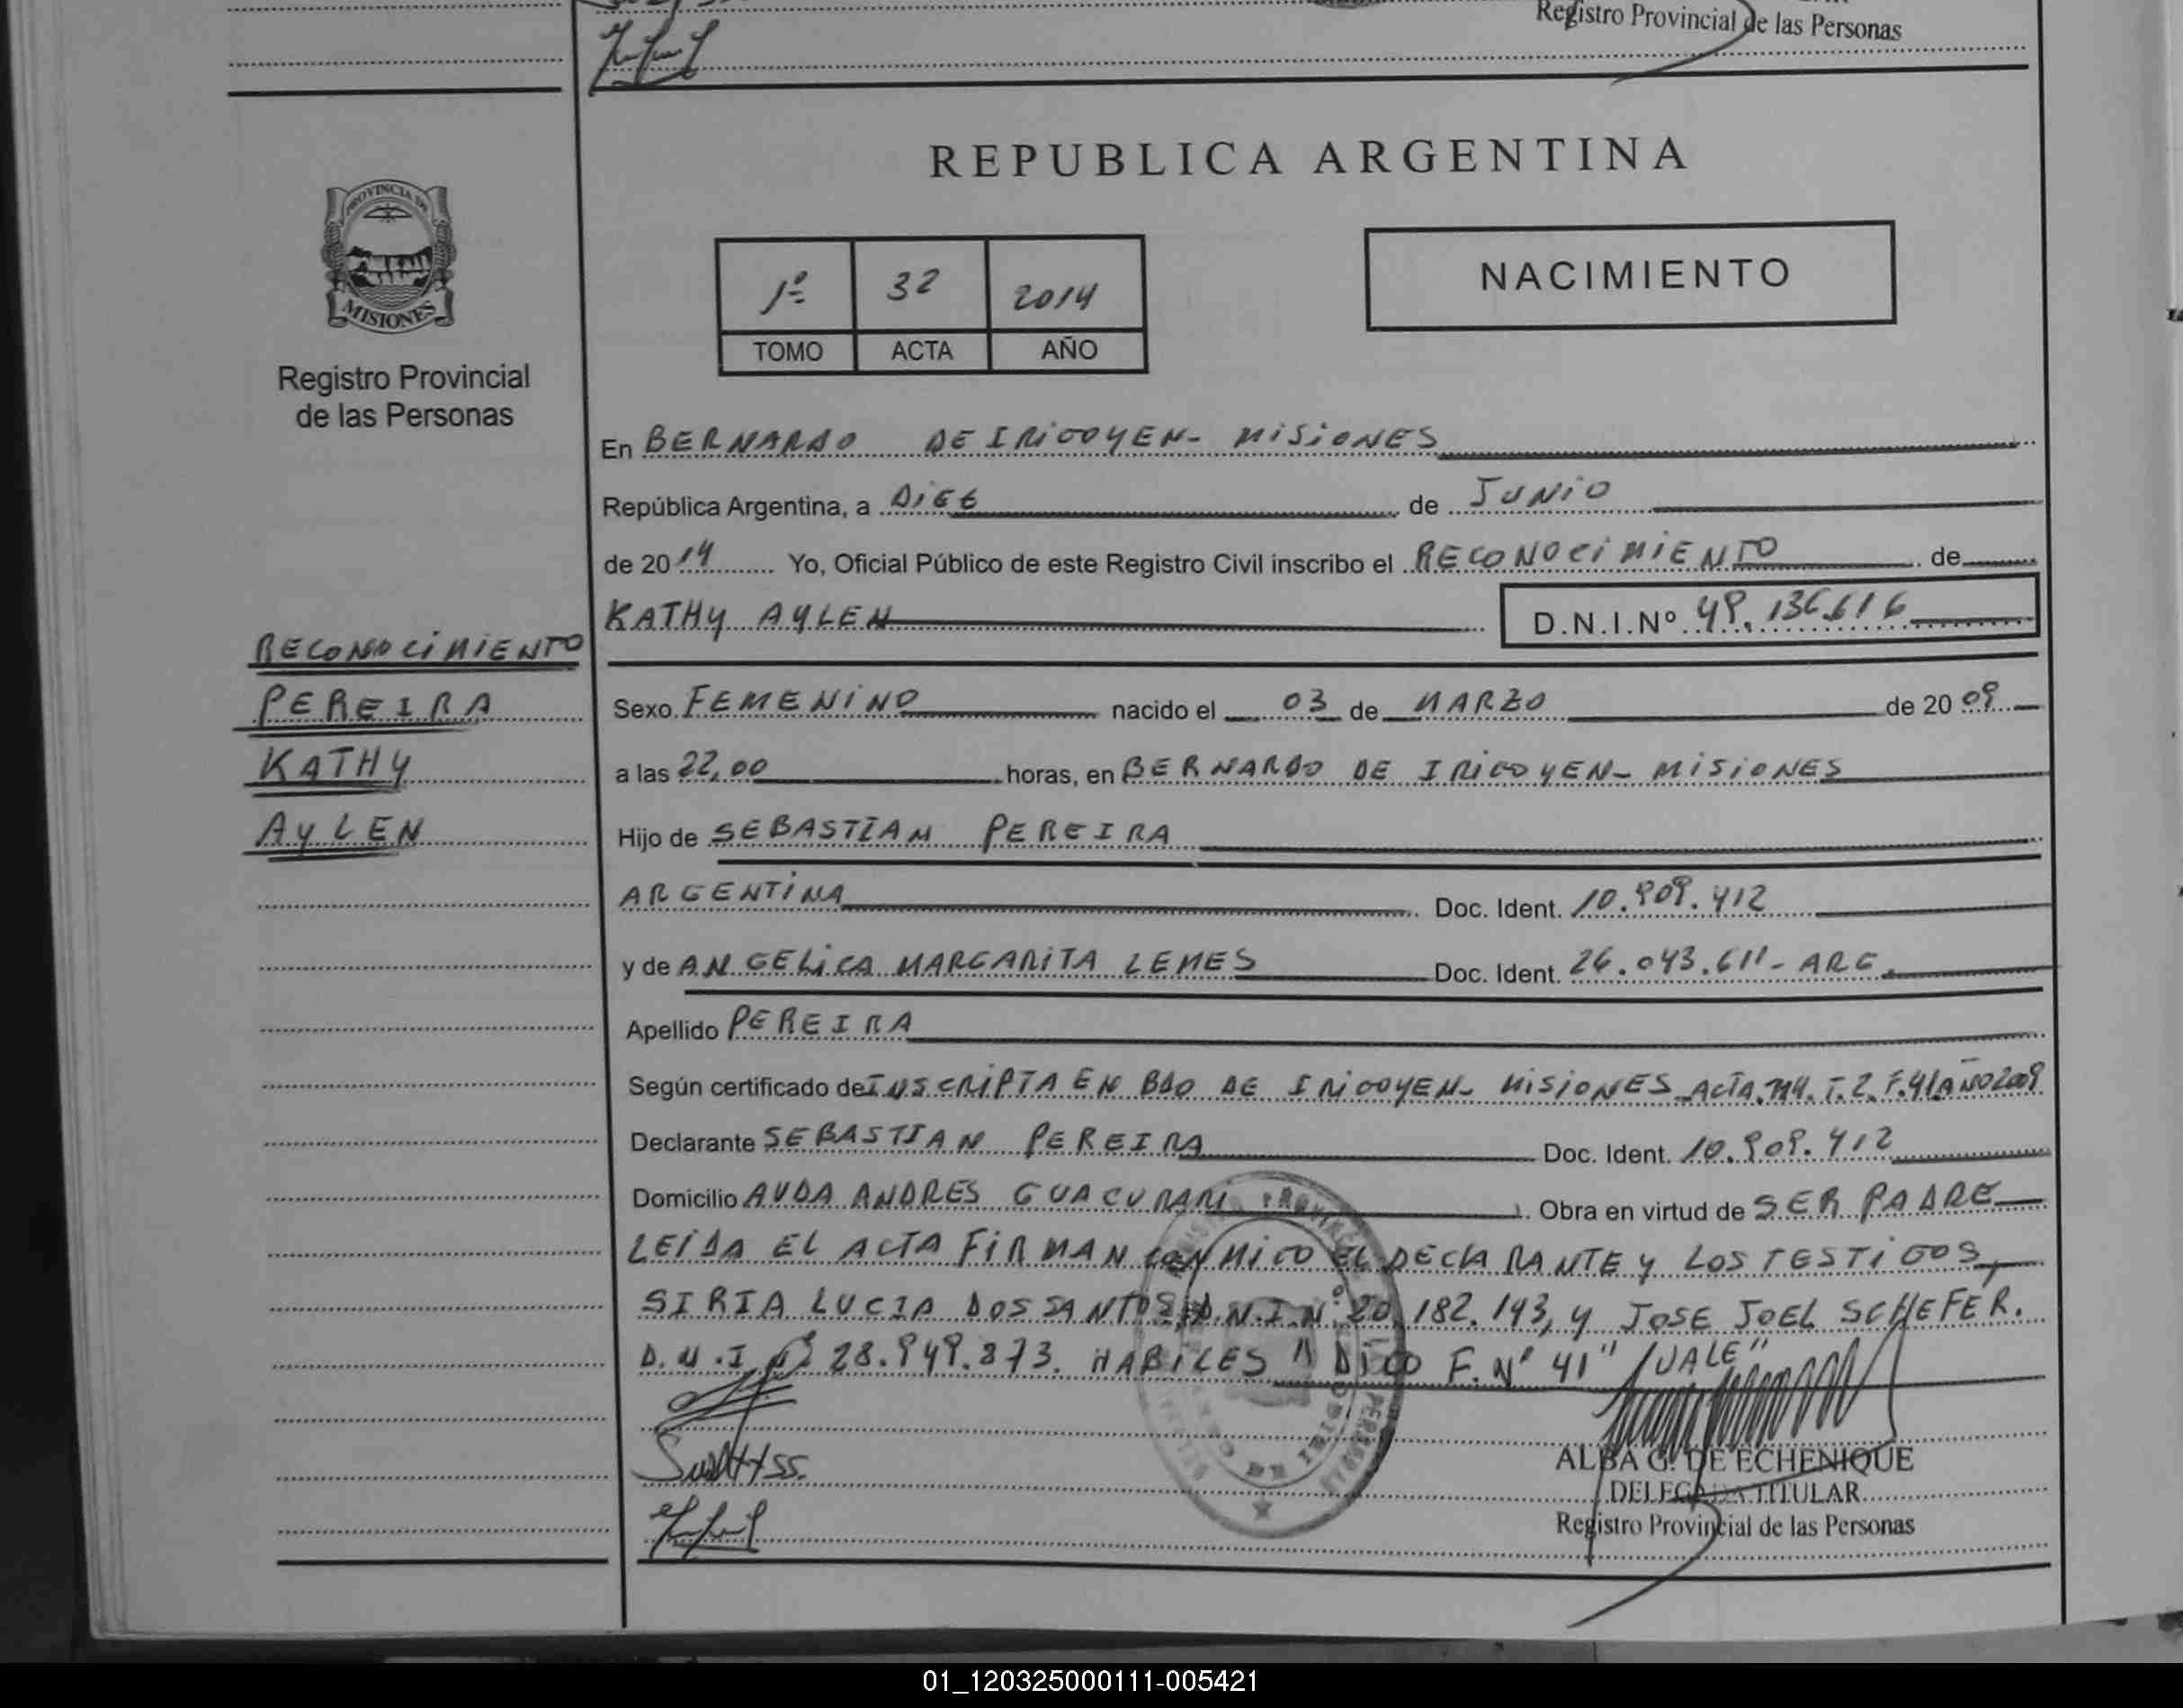 Registro Provincial de las Personas
REPUBLICA ARGENTINA
PROVINCIA DE
MISIONES
Registro Provincial
de las Personas
1º 32 2014
TOMO ACTA AÑO
NACIMIENTO
En BERNARDO DE IRIGOYEN- MISIONES
República Argentina, a DIEZ de JUNIO
de 2014 Yo, Oficial Público de este Registro Civil inscribo el RECONOCIMIENTO de
KATHY AYLEN D.N.I.Nº 49.136.616
RECONOCIMIENTO
PEREIRA
KATHY
AYLEN
Sexo FEMENINO nacido el 03 de MARZO de 2009
a las 22,00 horas, en BERNARDO DE IRIGOYEN- MISIONES
Hijo de SEBASTIAN PEREIRA
ARGENTINA Doc. Ident. 10.909.412
y de ANGELICA MARGARITA LEMES Doc. Ident. 26.043.611- ARG.
Apellido PEREIRA
Según certificado de INSCRIPTA EN BDO DE IRIGOYEN- MISIONES ACTA. T. 2. F. 41 AÑO 2009
Declarante SEBASTIAN PEREIRA Doc. Ident. 10.909.412
Domicilio AVDA ANDRES GUACURARI Obra en virtud de SER PADRE
LEIDA EL ACTA FIRMAN CONMIGO EL DECLARANTE Y LOS TESTIGOS,
SIRIA LUCIA DOS SANTOS, D.N.I.Nº 20.182.143, Y JOSE JOEL SCHEFER.
D.N.I.Nº 28.949.873. HABILES "DIGO F. Nº 41" /VALE"
ALBA G. DE ECHENIQUE
DELEGADA TITULAR
Registro Provincial de las Personas
01_120325000111-005421